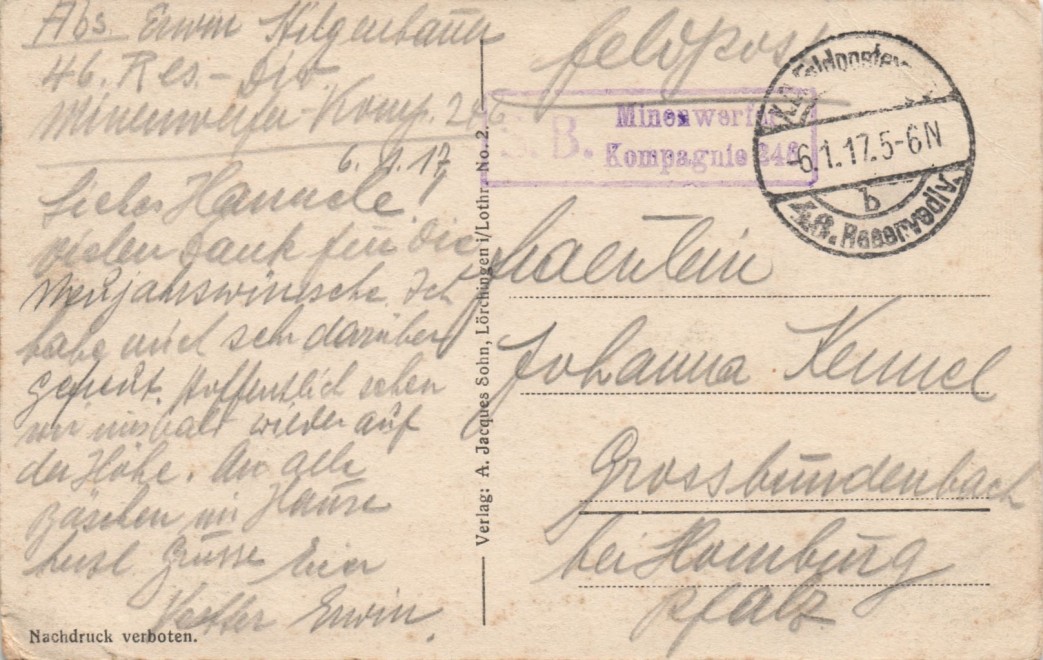 Abs. Erwin Hilgenbauer
46. Res.-Div.
Minenwerfer-Komp. 246
6.1.17
Liebes Hannele!
vielen Dank für die
Neujahrswünsche. Ich
habe mich sehr darüber
gefreut. Hoffentlich sehen
wir uns bald wieder auf
der Höhe. An alle
Bäschen im Hause
herzl. Grüsse Euer
Vetter Erwin.
Nachdruck verboten.
Verlag: A. Jacques Sohn, Lörchingen i/Lothr. No. 2.
Feldpost
S. B. Minenwerfer
Kompagnie 246
K.D. Feldpostexp.
-6.1.17.5-6N
b
46.R. Reservediv.
Fraeulein
Johanna Kennel
Grossbundenbach
bei Homburg
Pfalz